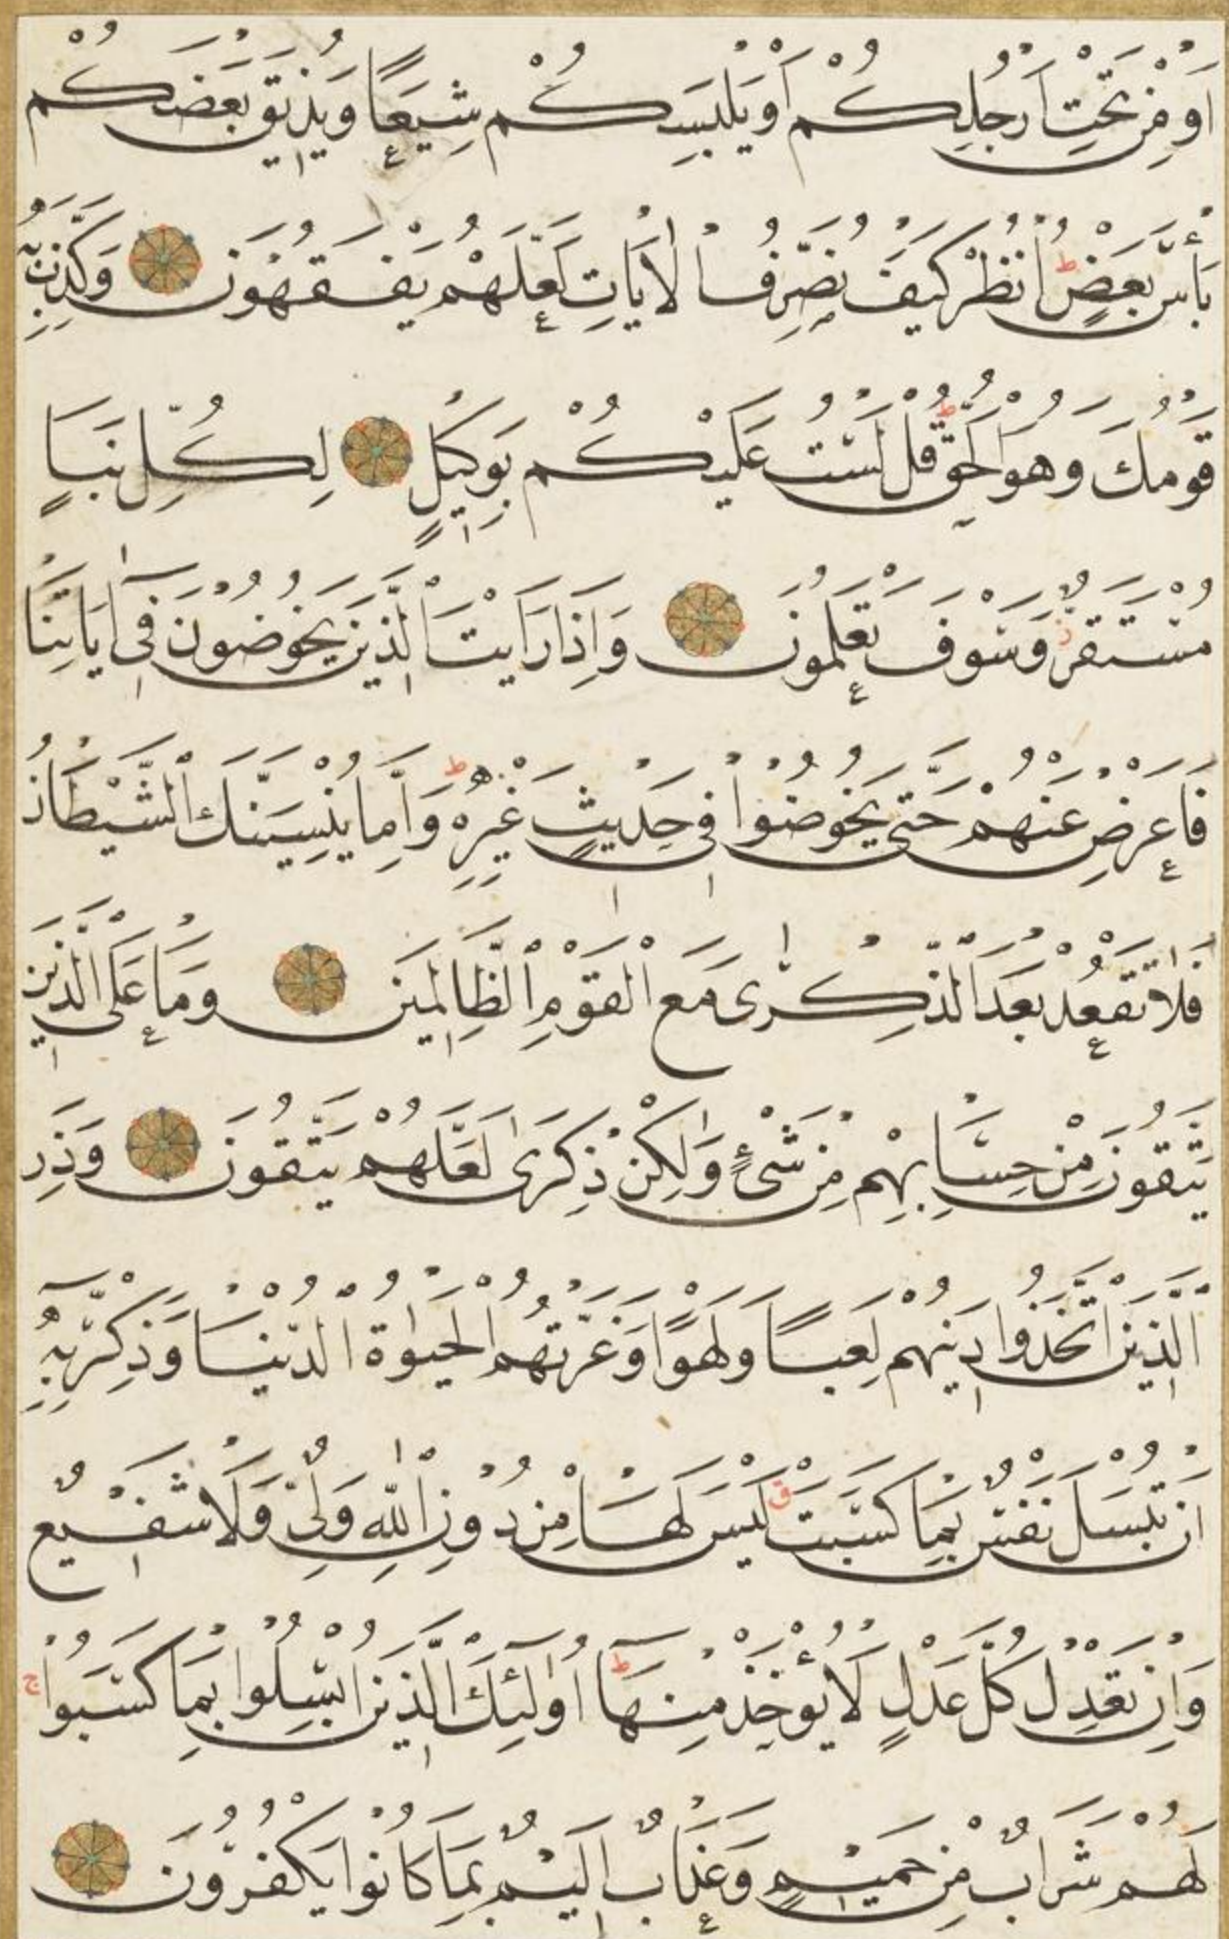 اَوْ مِنْ تَحْتِ اَرْجُلِكُمْ اَوْ يَلْبِسَكُمْ شِيَعًا وَيُذِيقَ بَعْضَكُمْ
بَأْسَ بَعْضٍ ط اُنْظُرْ كَيْفَ نُصَرِّفُ الْاٰيَاتِ لَعَلَّهُمْ يَفْقَهُونَ وَكَذَّبَ بِهِ
قَوْمُكَ وَهُوَ الْحَقُّ ط قُلْ لَسْتُ عَلَيْكُمْ بِوَكِيلٍ لِكُلِّ نَبَاٍ
مُسْتَقَرٌّ ز وَسَوْفَ تَعْلَمُونَ وَاِذَا رَاَيْتَ الَّذِينَ يَخُوضُونَ فِىٓ اٰيَاتِنَا
فَاَعْرِضْ عَنْهُمْ حَتّٰى يَخُوضُوا فِى حَدِيثٍ غَيْرِهِ ط وَاِمَّا يُنْسِيَنَّكَ الشَّيْطَانُ
فَلَا تَقْعُدْ بَعْدَ الذِّكْرٰى مَعَ الْقَوْمِ الظَّالِمِينَ وَمَا عَلَى الَّذِينَ
يَتَّقُونَ مِنْ حِسَابِهِمْ مِنْ شَىْءٍ وَلٰكِنْ ذِكْرٰى لَعَلَّهُمْ يَتَّقُونَ وَذَرِ
الَّذِينَ اتَّخَذُوا دِينَهُمْ لَعِبًا وَلَهْوًا وَغَرَّتْهُمُ الْحَيٰوةُ الدُّنْيَا وَذَكِّرْ بِهِٓ
اَنْ تُبْسَلَ نَفْسٌ بِمَا كَسَبَتْ ق لَيْسَ لَهَا مِنْ دُونِ اللّٰهِ وَلِىٌّ وَلَا شَفِيعٌ
وَاِنْ تَعْدِلْ كُلَّ عَدْلٍ لَا يُؤْخَذْ مِنْهَا ط اُولٰٓئِكَ الَّذِينَ اُبْسِلُوا بِمَا كَسَبُوا ج
لَهُمْ شَرَابٌ مِنْ حَمِيمٍ وَعَذَابٌ اَلِيمٌ بِمَا كَانُوا يَكْفُرُونَ